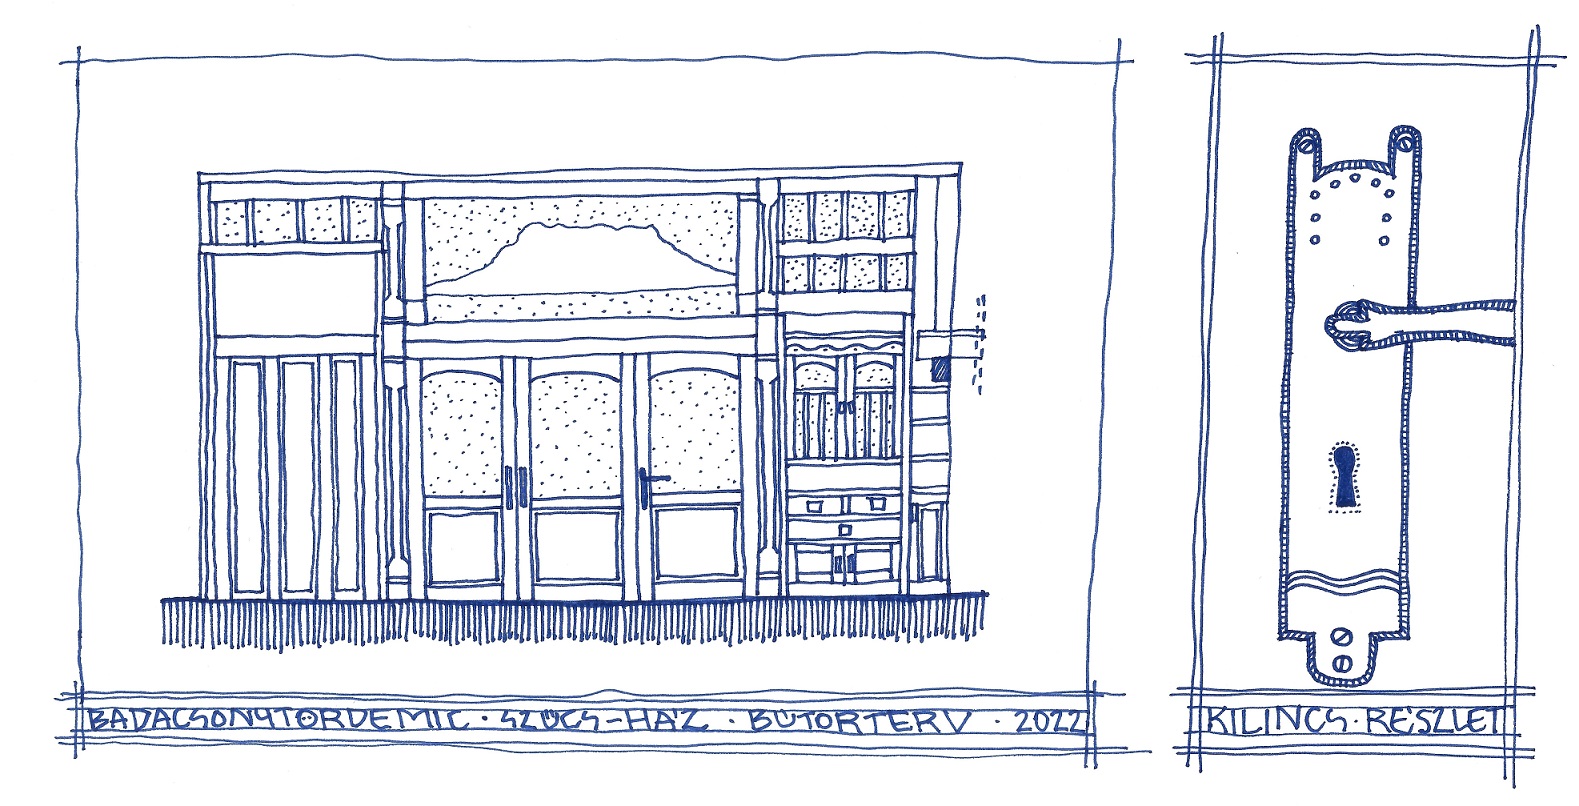 BADACSONYTÖRDEMIC · SZŰCS-HÁZ · BÚTORTERV · 2022
KILINCS · RÉSZLET